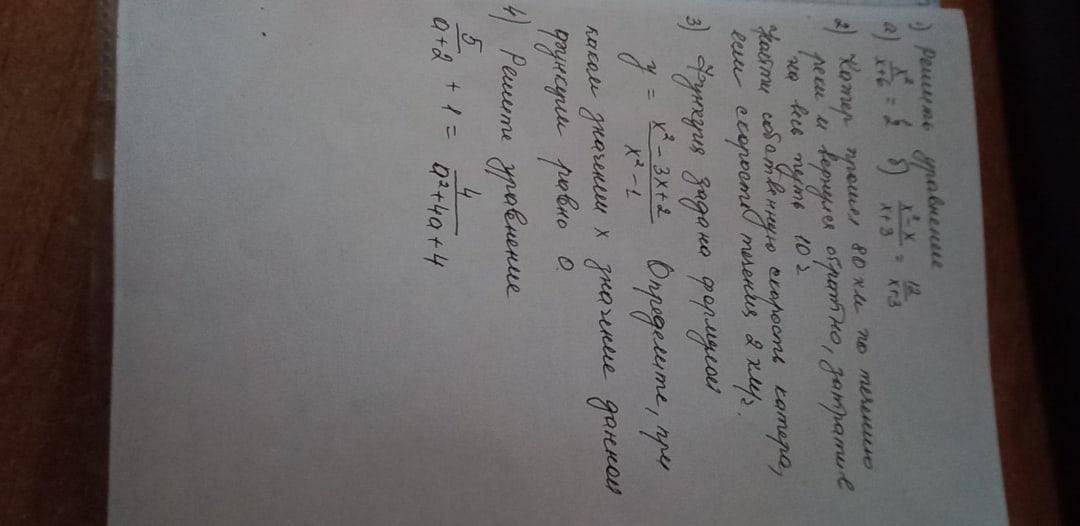 1) Решить уравнение
а) x²/x+6 = 1/2 б) x²-x/x+3 = 12/x+3
2) Катер прошел 80 км по течению
реки и вернулся обратно, затратив
на весь путь 10 ч
Найти собственную скорость катера,
если скорость течения 2 км/ч.
3) Функция задана формулой
y = x² - 3x + 2/x² - 1 Определите, при
каком значении x значение данной
функции равно 0.
4) Решите уравнение
5/a+2 + 1 = 4/a²+4a+4